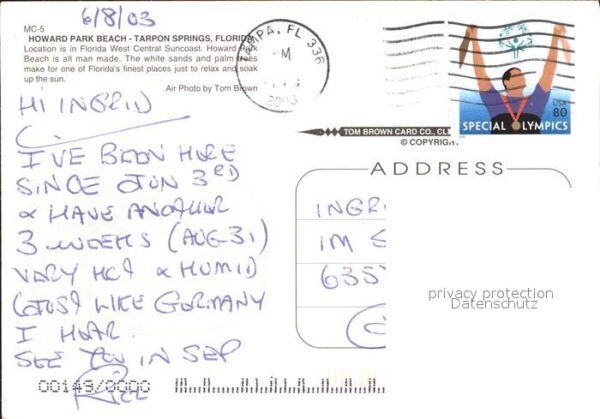 6/8/03
MC-5
HOWARD PARK BEACH - TARPON SPRINGS, FLORIDA
Location is in Florida West Central Suncoast. Howard Park
Beach is all man made. The white sands and palm trees
make for one of Florida's finest places just to relax and soak
up the sun.
Air Photo by Tom Brown
TAMPA, FL 336
M
2003
USA
80
SPECIAL OLYMPICS
TOM BROWN CARD CO., CL
© COPYRIGHT
ADDRESS
HI INGRID
I'VE BEEN HERE
SINCE JUN 3RD
& HAVE ANOTHER
3 WEEKS (AUG 31)
VERY HOT & HUMID
(JUST LIKE GERMANY
I HEAR.
SEE YOU IN SEP
INGR
IM S
635
privacy protection
Datenschutz
00149/0000